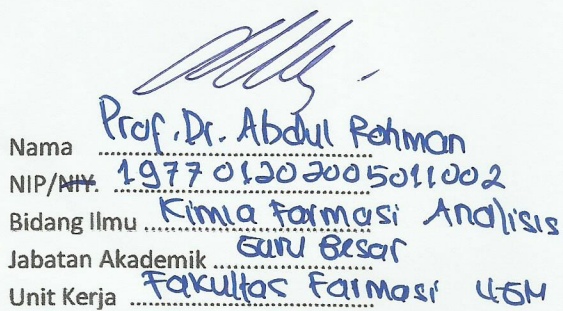 Nama Prof. Dr. Abdul Rohman
NIP/NIY. 197701202005011002
Bidang Ilmu Kimia Farmasi Analisis
Jabatan Akademik Guru Besar
Unit Kerja Fakultas Farmasi UGM